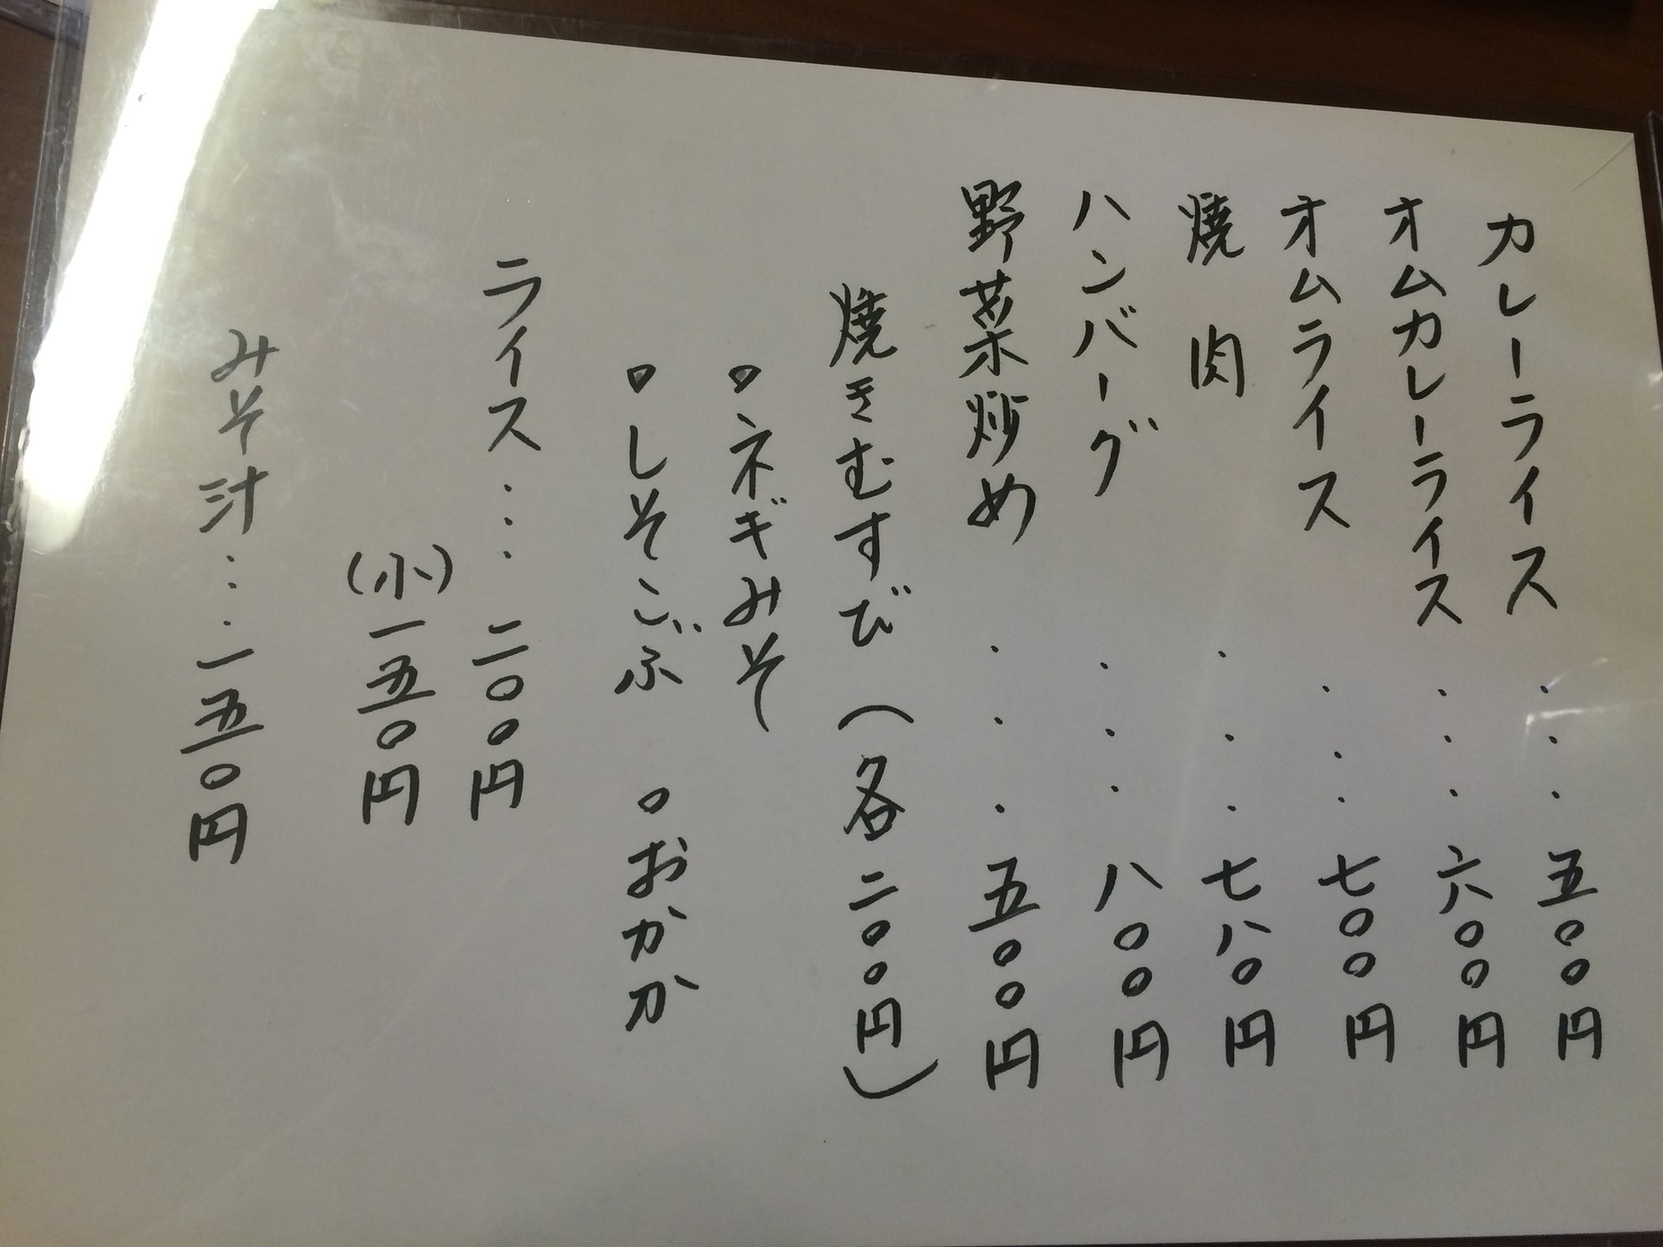 カレーライス・・・五〇〇円
オムカレーライス・・・六〇〇円
オムライス・・・七〇〇円
焼肉・・・七八〇円
ハンバーグ・・・八〇〇円
野菜炒め・・・五〇〇円
焼きむすび(各二〇〇円)
○ネギみそ
○しそこぶ ○おかか
ライス・・・二〇〇円
(小)一五〇円
みそ汁・・・一五〇円